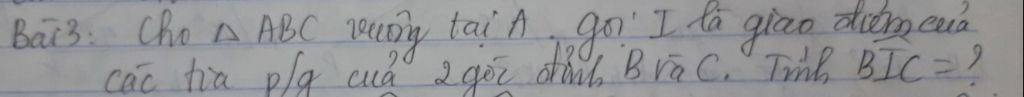 Bài 3: Cho △ ABC vuông tại A. gọi I là giao điểm của
các tia p/g của 2 góc đỉnh B và C. Tính BIC = ?